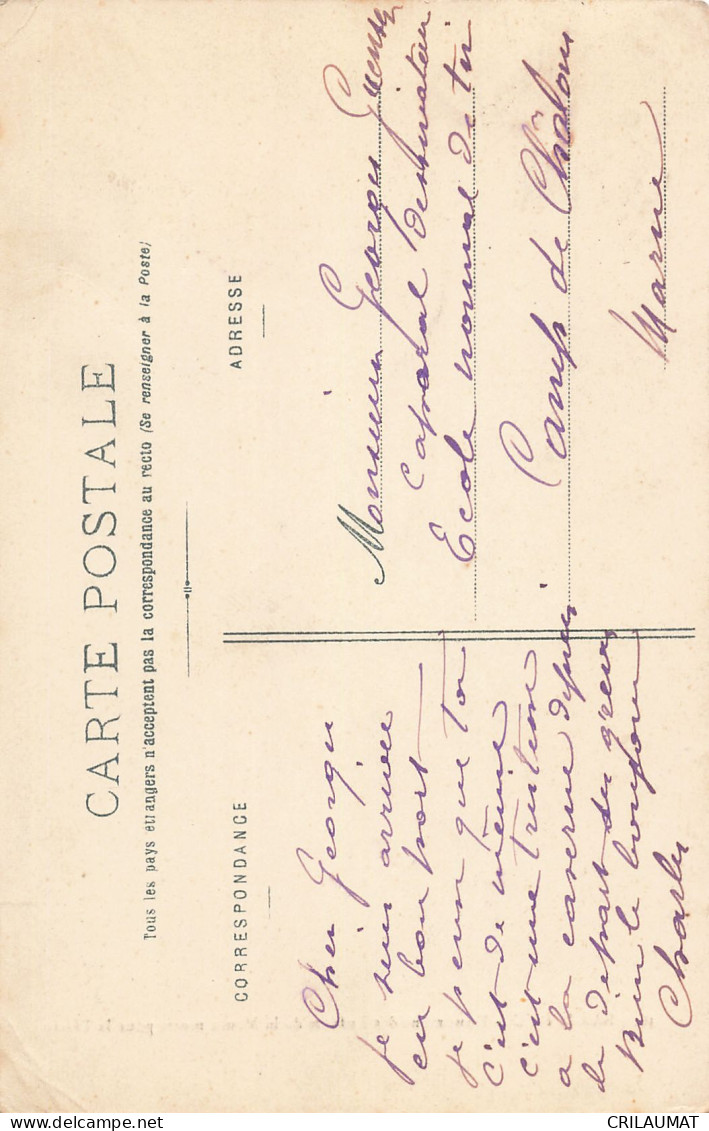 CARTE POSTALE
Tous les pays étrangers n'acceptent pas la correspondance au recto (Se renseigner à la Poste)
CORRESPONDANCE
Cher Georges
je suis arrivée
en bon port
je pense que toi
c'est de même
c'est une tristesse
a la caserne depuis
le depart des
bien le bonjour
Charles
ADRESSE
Monsieur Georges
Caporal
Ecole normal de tir
Camp de Châlons
Marne
CRILAUMAT